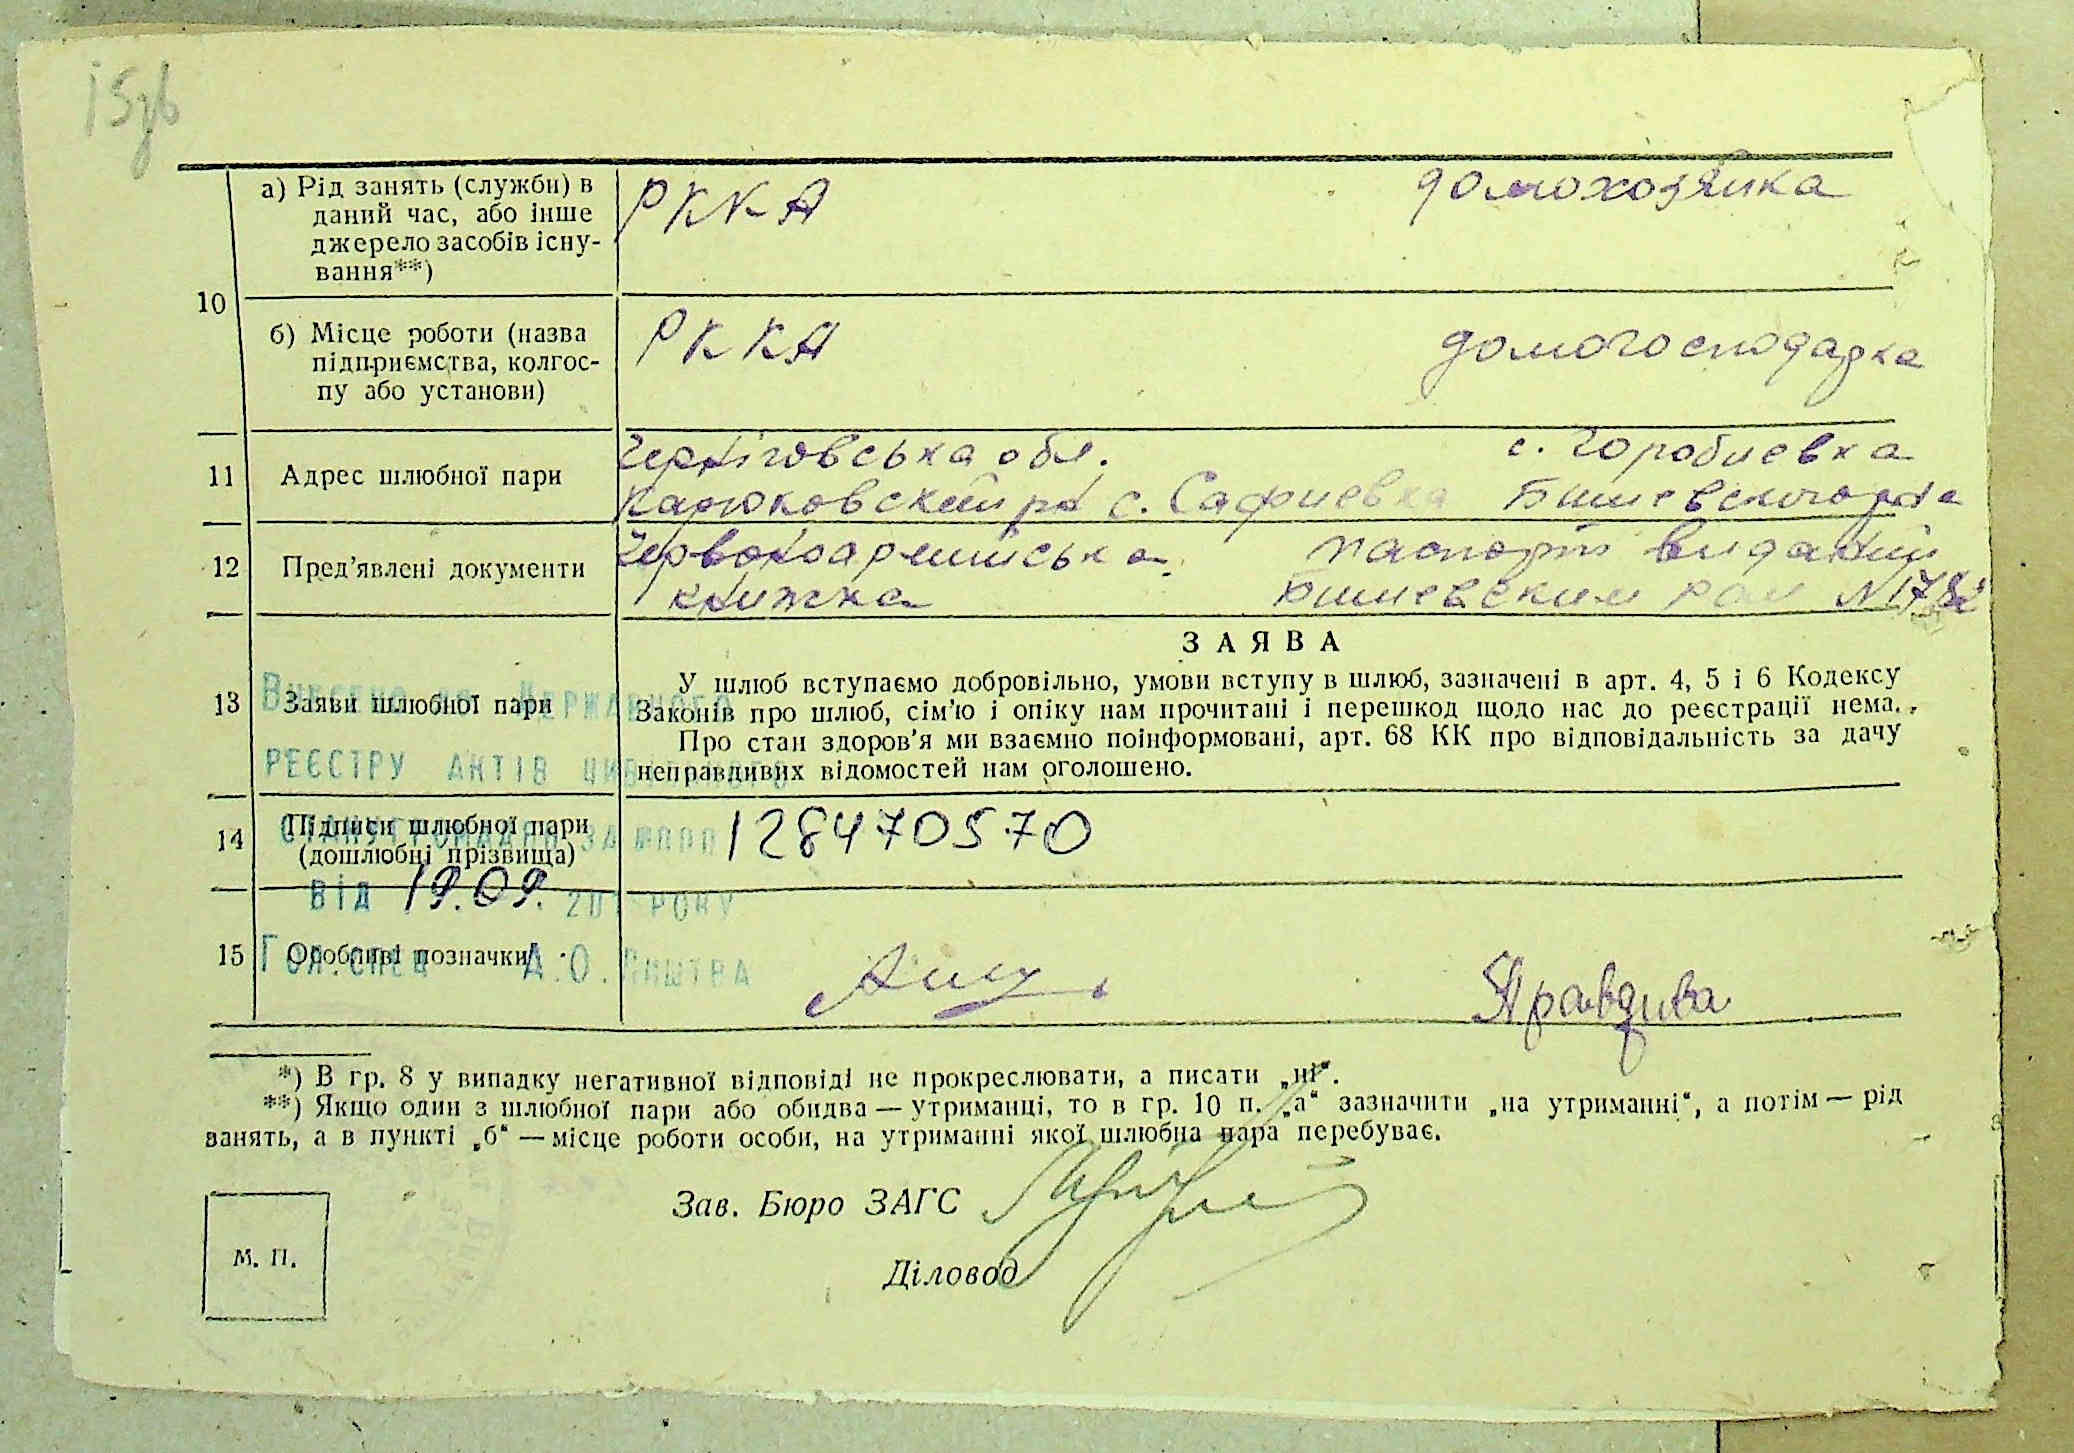 15зв
10
а) Рід занять (служби) в
даний час, або інше
джерело засобів існу-
вання**)
РККА
домохозяйка
б) Місце роботи (назва
підприємства, колгос-
пу або установи)
РККА
домогосподарка
11
Адрес шлюбної пари
Черніговська обл.
с. Горобиевка
Карюковский рн с. Сафиевка
Бишевского рна
12
Пред’явлені документи
Червоноармийська
книжка
паспорт виданий
Бишевским
13
Заяви шлюбної пари
ЗАЯВА
У шлюб вступаємо добровільно, умови вступу в шлюб, зазначені в арт. 4, 5 і 6 Кодексу
Законів про шлюб, сім’ю і опіку нам прочитані і перешкод щодо нас до реєстрації нема.
Про стан здоров’я ми взаємно поінформовані, арт. 68 КК про відповідальність за дачу
неправдивих відомостей нам оголошено.
Внесено до Державного
реєстру актів цивільного
стану громадян за №
128470570
від 19.09. 201 року
Гол.спец А.О.
14
Підписи шлюбної пари
(дошлюбні прізвища)
15
Особливі позначки
Правдива
*) В гр. 8 у випадку негативної відповіді не прокреслювати, а писати „ні“.
**) Якщо один з шлюбної пари або обидва — утриманці, то в гр. 10 п. „а“ зазначити „на утриманні“, а потім — рід
занять, а в пункті „б“ — місце роботи особи, на утриманні якої шлюбна пара перебуває.
Зав. Бюро ЗАГС
Діловод
М. П.